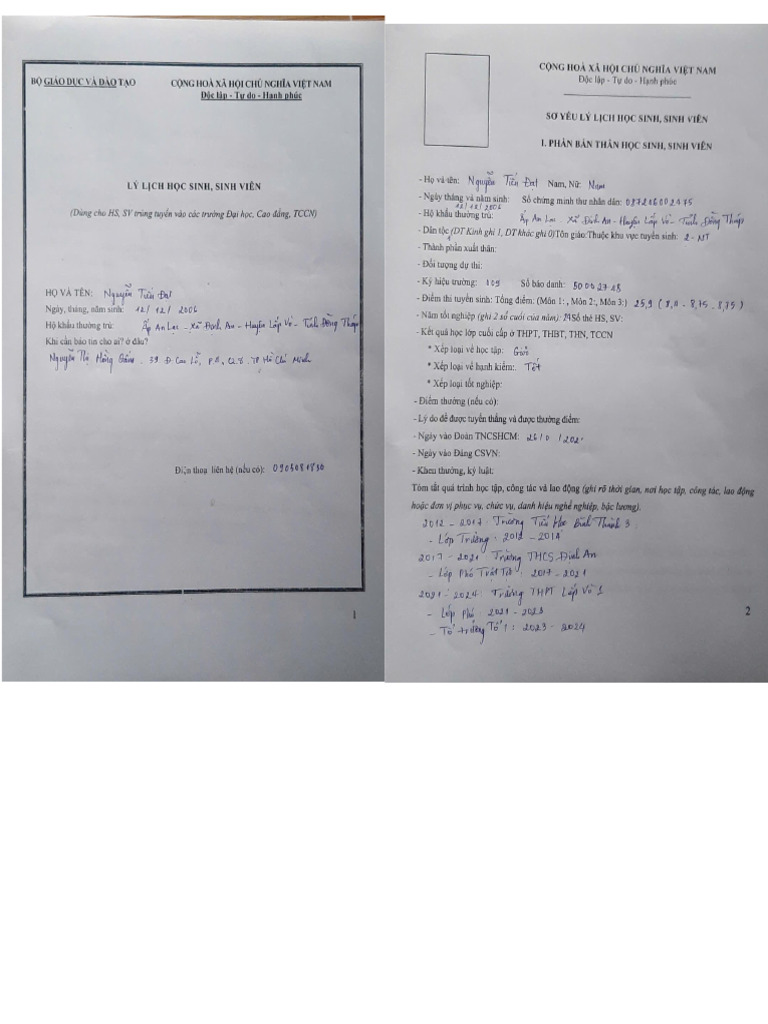 BỘ GIÁO DỤC VÀ ĐÀO TẠO
CỘNG HOÀ XÃ HỘI CHỦ NGHĨA VIỆT NAM
Độc lập - Tự do - Hạnh phúc
LÝ LỊCH HỌC SINH, SINH VIÊN
(Dùng cho HS, SV trúng tuyển vào các trường Đại học, Cao đẳng, TCCN)
HỌ VÀ TÊN: Nguyễn Tiến Đạt
Ngày, tháng, năm sinh: 12/ 12/ 2006
Hộ khẩu thường trú: Ấp An Lạc - Xã Định An - Huyện Lấp Vò - Tỉnh Đồng Tháp
Khi cần báo tin cho ai? ở đâu?
Nguyễn Thị Hồng 39 Đ. Cao Lỗ, P.4, Q.8, TP Hồ Chí Minh
Điện thoại liên hệ (nếu có):
1
CỘNG HOÀ XÃ HỘI CHỦ NGHĨA VIỆT NAM
Độc lập - Tự do - Hạnh phúc
SƠ YẾU LÝ LỊCH HỌC SINH, SINH VIÊN
I. PHẦN BẢN THÂN HỌC SINH, SINH VIÊN
- Họ và tên: Nguyễn Tiến Đạt Nam, Nữ: Nam
- Ngày tháng và năm sinh: Số chứng minh thư nhân dân:
12/12/2006
- Hộ khẩu thường trú: Ấp An Lạc - Xã Định An - Huyện Lấp Vò - Tỉnh Đồng Tháp
- Dân tộc (DT Kinh ghi 1, DT khác ghi 0) Tôn giáo: Thuộc khu vực tuyển sinh: 2 - NT
1
- Thành phần xuất thân:
- Đối tượng dự thi:
- Ký hiệu trường: Số báo danh: 50002728
- Điểm thi tuyển sinh: Tổng điểm: (Môn 1: , Môn 2:, Môn 3:) 25,9
- Năm tốt nghiệp (ghi 2 số cuối của năm): 24 Số thẻ HS, SV:
- Kết quả học lớp cuối cấp ở THPT, THBT, THN, TCCN
* Xếp loại về học tập: Giỏi
* Xếp loại về hạnh kiểm: Tốt
* Xếp loại tốt nghiệp:
- Điểm thưởng (nếu có):
- Lý do để được tuyển thẳng và được thưởng điểm:
- Ngày vào Đoàn TNCSHCM:
- Ngày vào Đảng CSVN:
- Khen thưởng, kỷ luật:
Tóm tắt quá trình học tập, công tác và lao động (ghi rõ thời gian, nơi học tập, công tác, lao động
hoặc đơn vị phục vụ, chức vụ, danh hiệu nghề nghiệp, bậc lương).
2012 - 2017: Trường Tiểu Học Bình Thành 3
- Lớp Trưởng: 2012 - 2014
2017 - 2021: Trường THCS Định An
- Lớp Phó Trật Tự: 2017 - 2021
2021 - 2024: Trường THPT Lấp Vò 1
- Lớp Phó: 2021 - 2023
- Tổ trưởng Tổ 1: 2023 - 2024
2